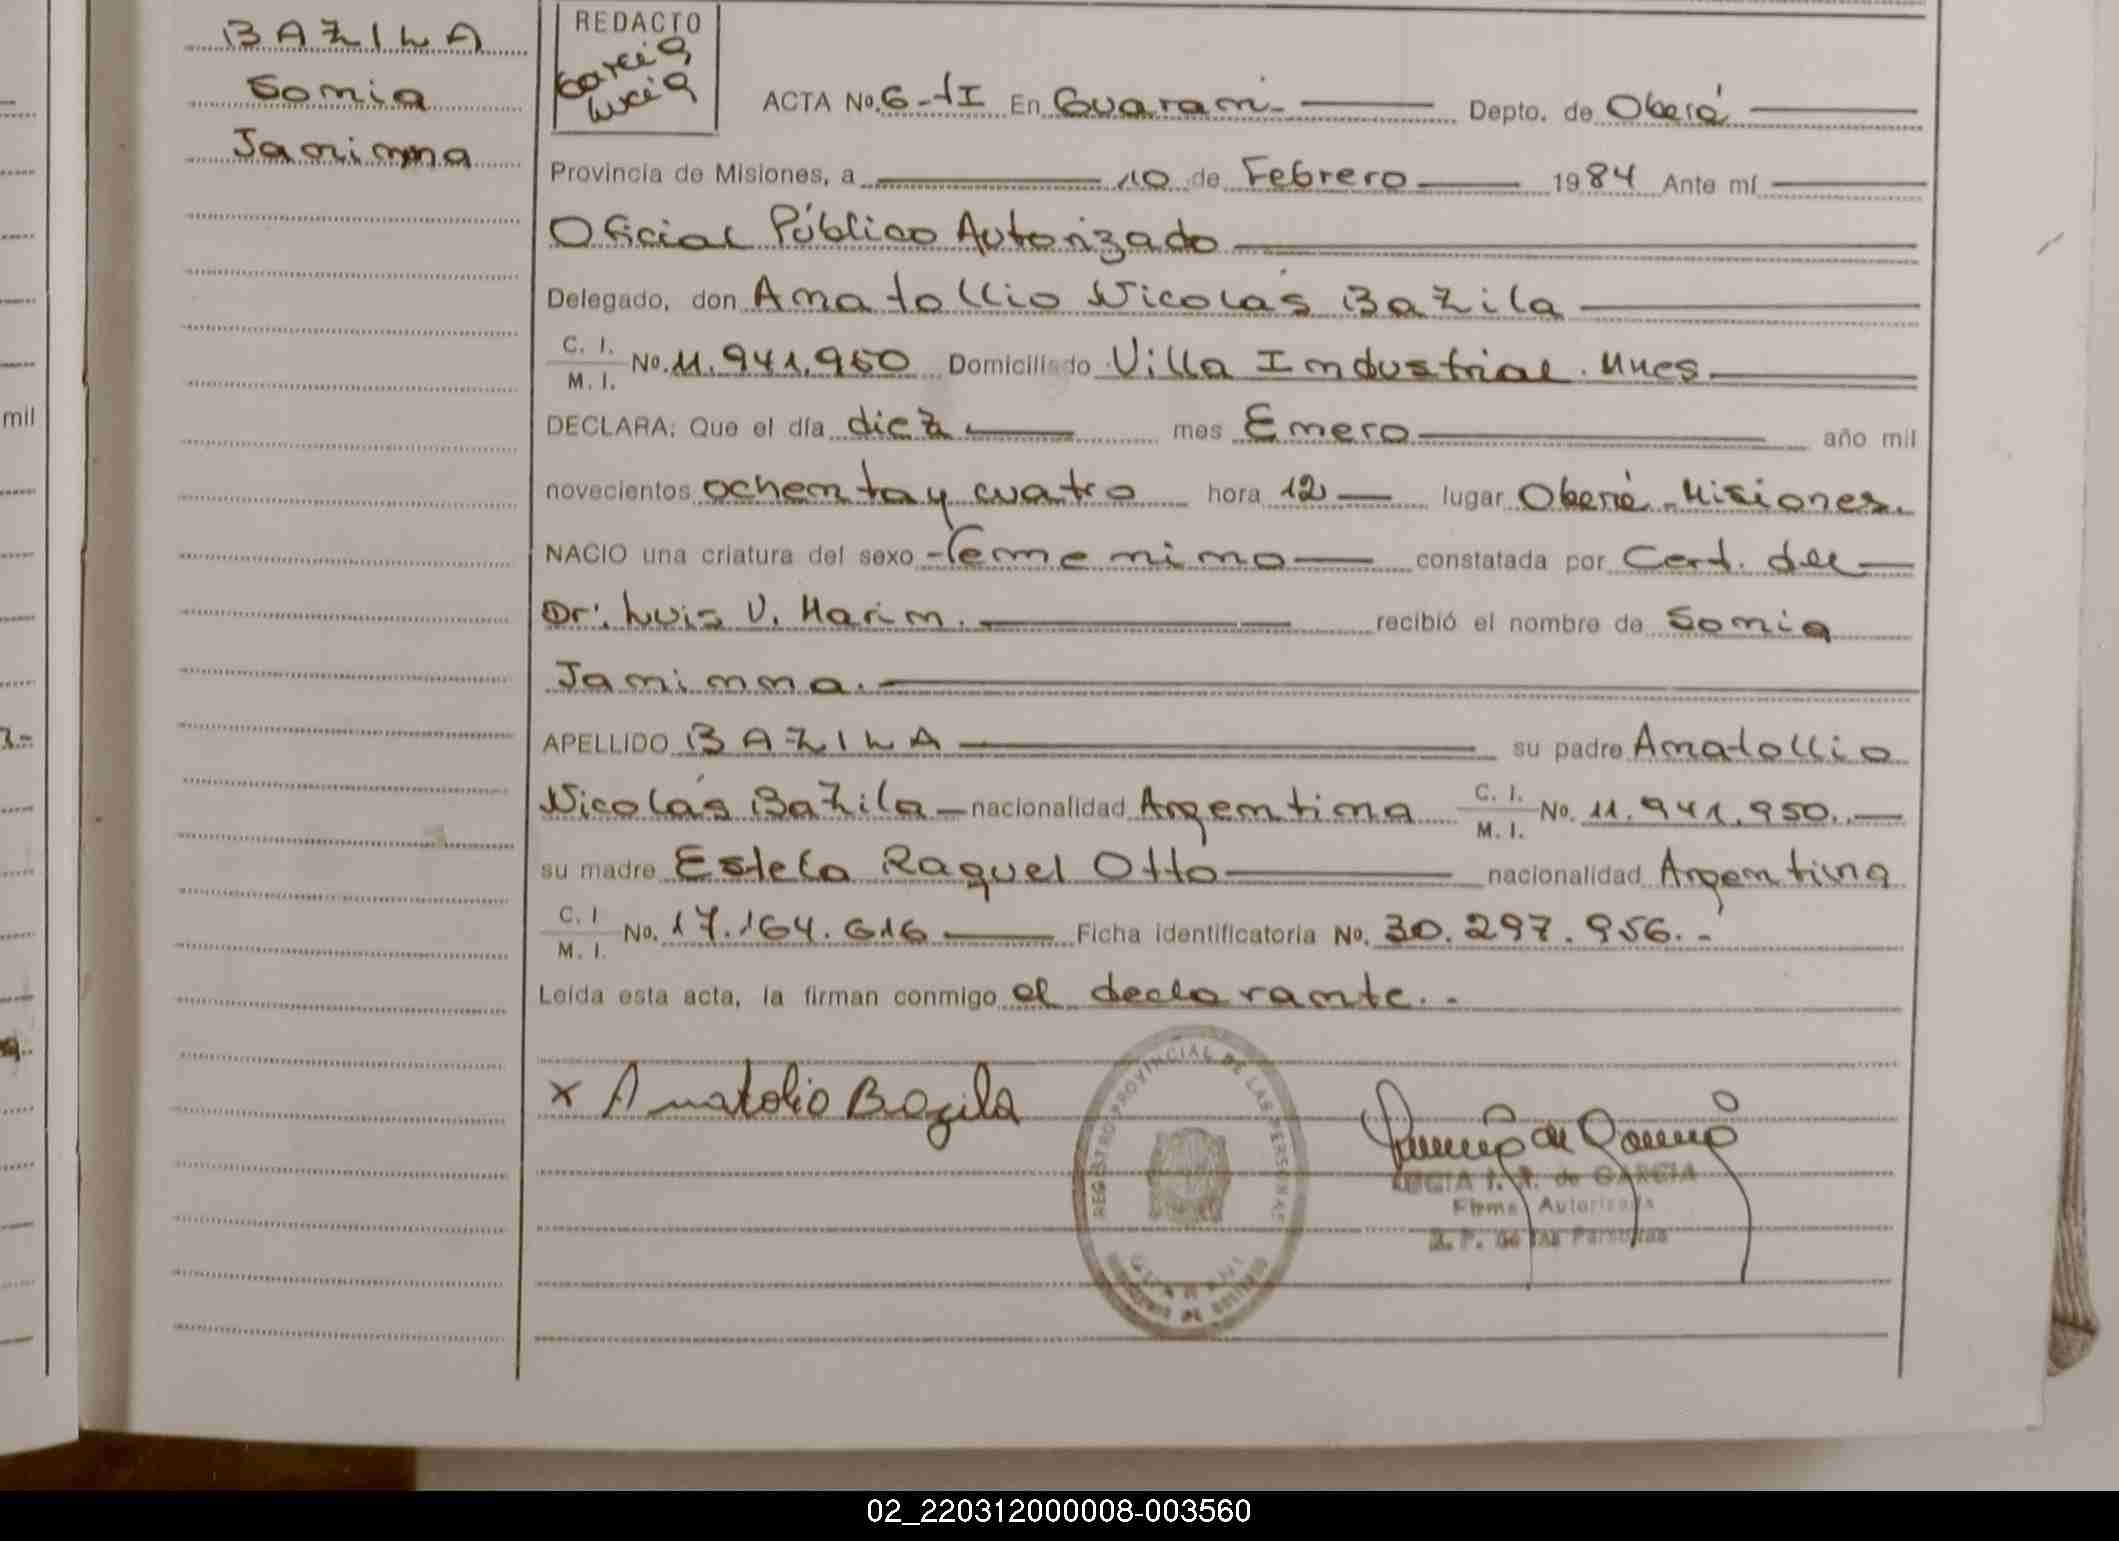 BAZILA
Sonia
Janinna
REDACTO
Garcia
Lucia
ACTA No. 6-TI En Guarani- Depto. de Oberá
Provincia de Misiones, a 10 de Febrero 1984 Ante mí
Oficial Público Autorizado
Delegado, don Anatollio Nicolás Bazila
C. I. / M. I. No. 11.941.950 Domiciliado Villa Industrial. Mnes.
DECLARA: Que el día diez mes Enero año mil
novecientos ochenta y cuatro hora 12 lugar Oberá - Misiones.
NACIO una criatura del sexo femenino constatada por Cert. del
Dr. Luis V. Marin. recibió el nombre de Sonia
Janinna.
APELLIDO BAZILA su padre Anatollio
Nicolás Bazila nacionalidad Argentina C. I. / M. I. No. 11.941.950.
su madre Estela Raquel Otto nacionalidad Argentina
C. I / M. I. No. 17.164.616 Ficha identificatoria No. 30.297.956.-
Leída esta acta, la firman conmigo el declarante.-
x Anatolio Bazila
REGISTRO PROVINCIAL DE LAS PERSONAS
GUARANI
LUCIA de GARCIA
Firma Autorizada
R. P. de las Personas
mil
02_220312000008-003560